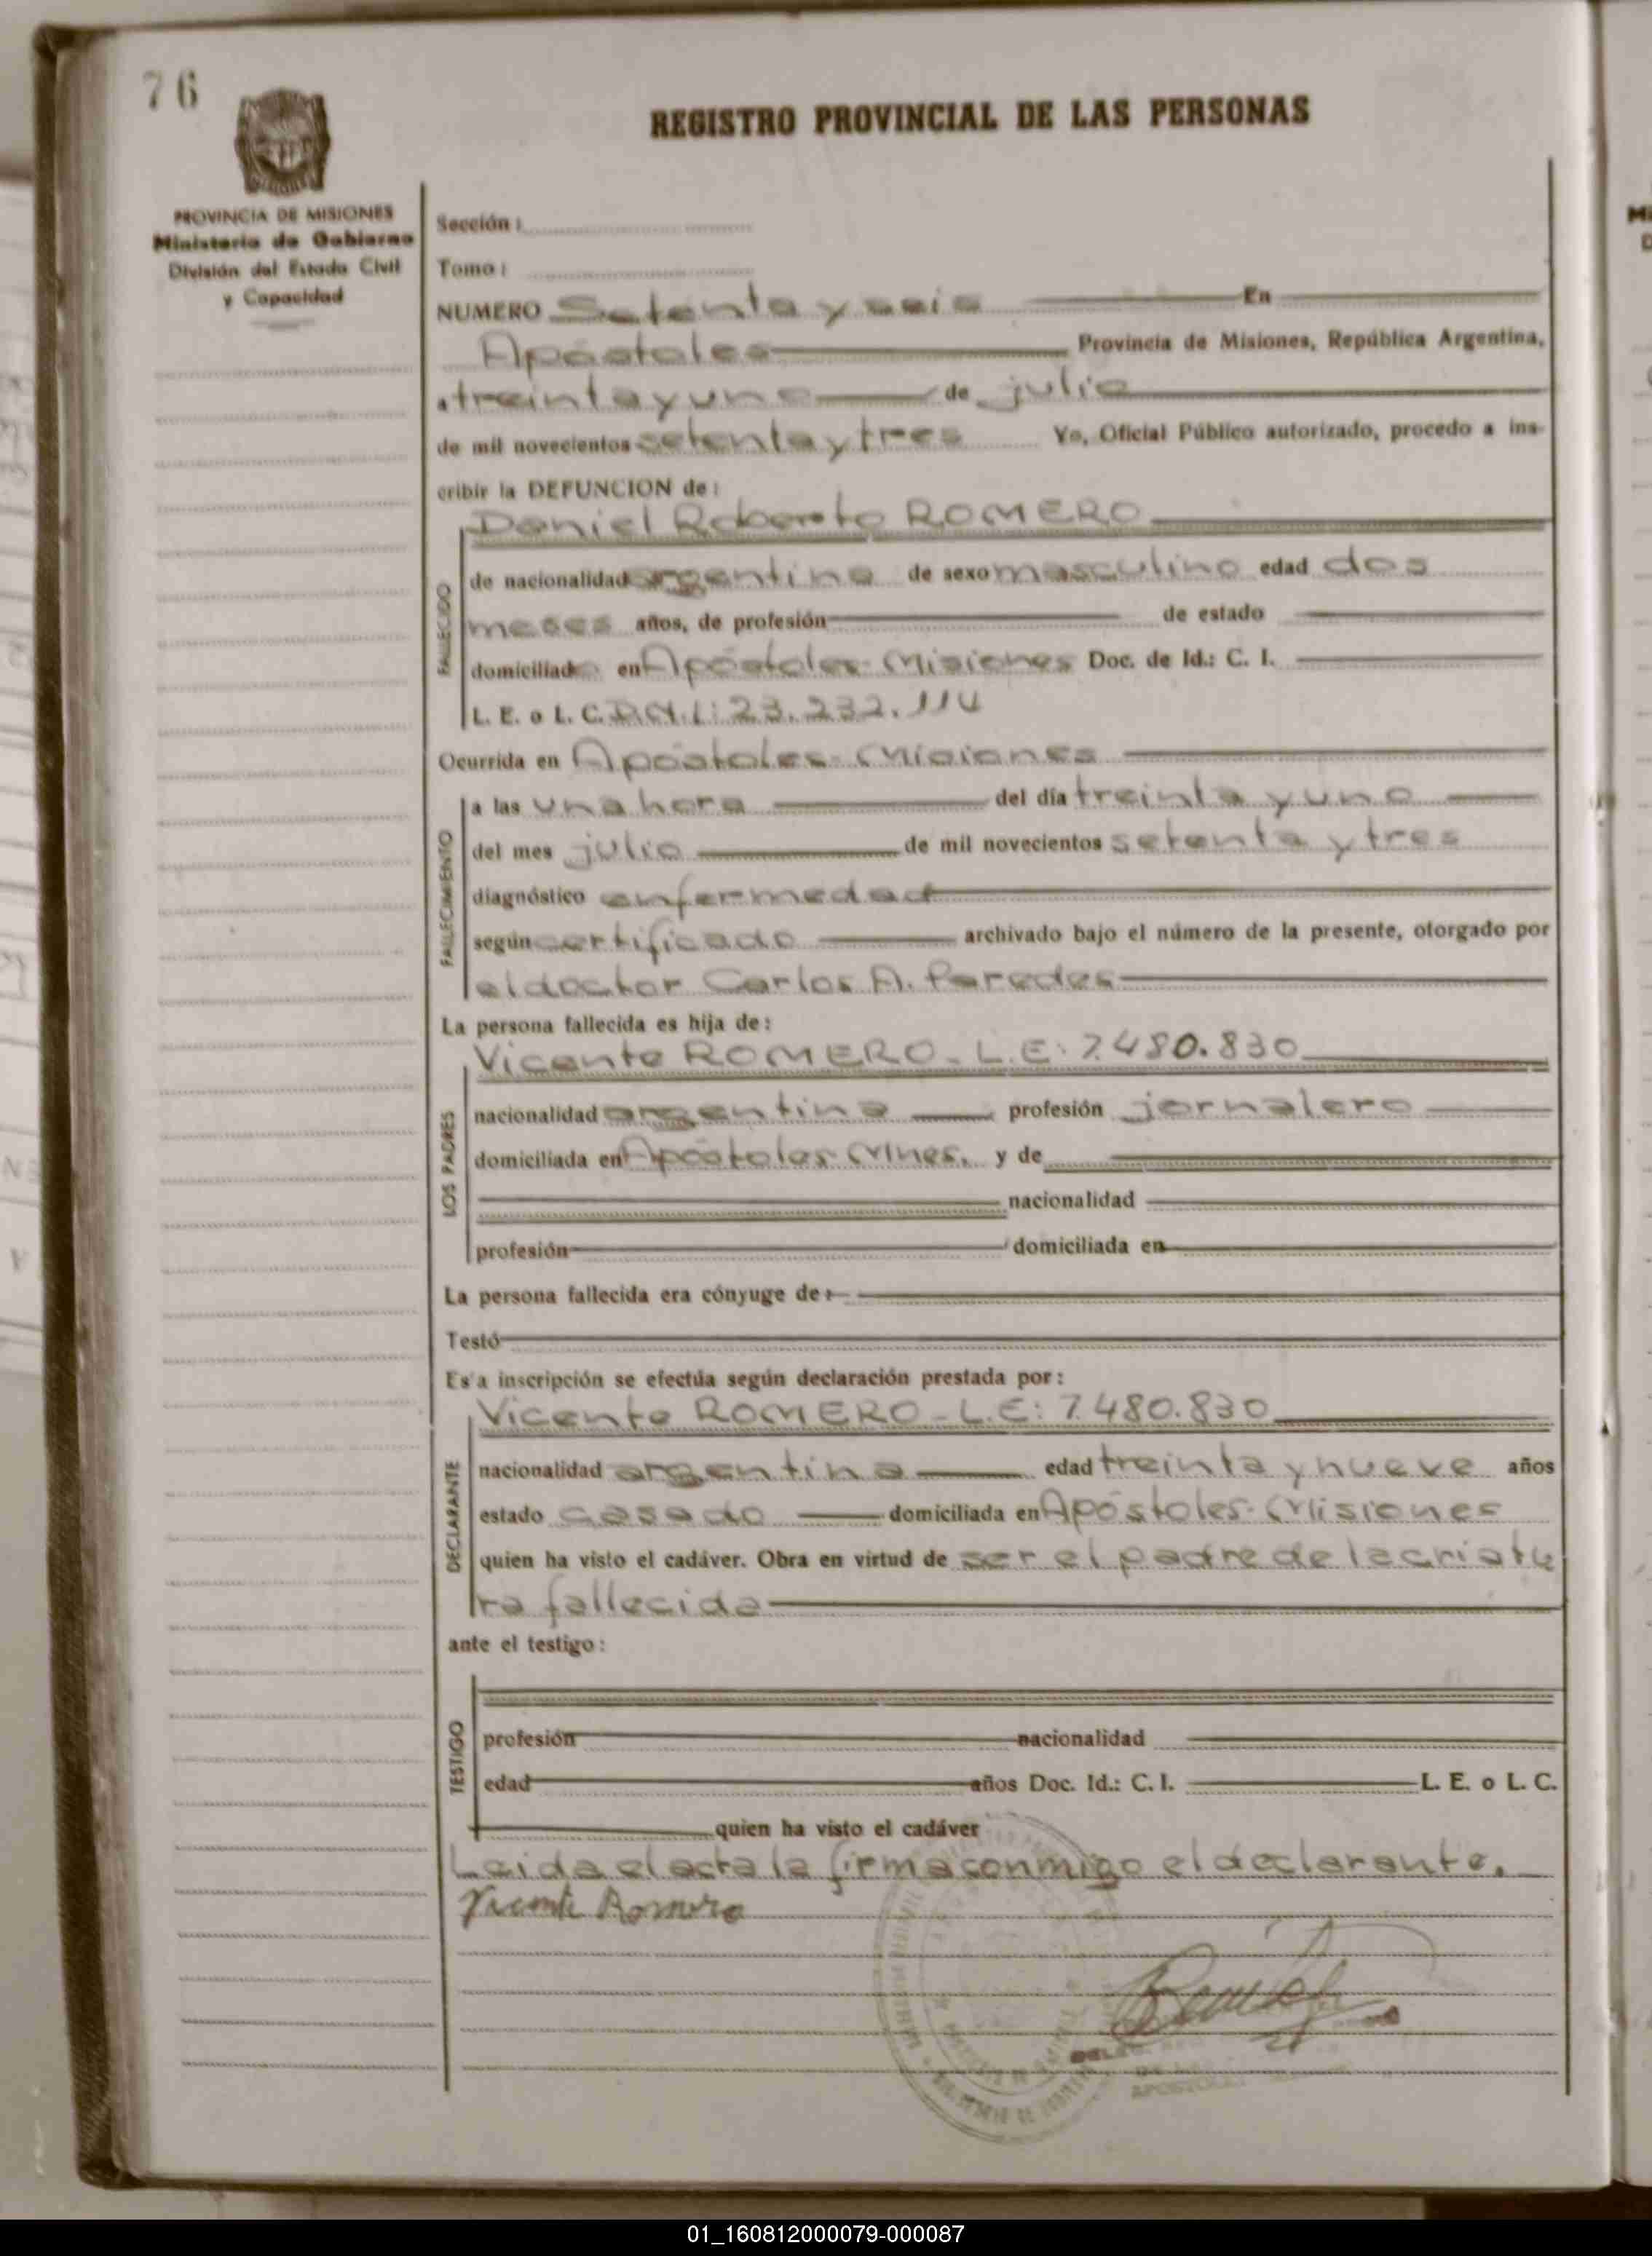 76
REGISTRO PROVINCIAL DE LAS PERSONAS
PROVINCIA DE MISIONES
Ministerio de Gobierno
División del Estado Civil
y Capacidad
Sección :
Tomo :
NUMERO Setenta y seis En
Apóstoles Provincia de Misiones, República Argentina,
a treinta y uno de julio
de mil novecientos setenta y tres Yo, Oficial Público autorizado, procedo a ins-
cribir la DEFUNCION de :
FALLECIDO
Daniel Roberto ROMERO
de nacionalidad argentina de sexo masculino edad dos
meses años, de profesión de estado
domiciliado en Apóstoles-Misiones Doc. de Id.: C. I.
L. E. o L. C. D.N.I: 23.232.114
Ocurrida en Apóstoles-Misiones
FALLECIMIENTO
a las una hora del día treinta y uno
del mes julio de mil novecientos setenta y tres
diagnóstico enfermedad
según certificado archivado bajo el número de la presente, otorgado por
el doctor Carlos A. Paredes
La persona fallecida es hija de :
LOS PADRES
Vicente ROMERO - L.E: 7.480.830
nacionalidad argentina profesión jornalero
domiciliada en Apóstoles-Mnes. y de
nacionalidad
profesión domiciliada en
La persona fallecida era cónyuge de :
Testó
Es'a inscripción se efectúa según declaración prestada por :
DECLARANTE
Vicente ROMERO - L.E: 7.480.830
nacionalidad argentina edad treinta y nueve años
estado casado domiciliada en Apóstoles-Misiones
quien ha visto el cadáver. Obra en virtud de ser el padre de la criatu
ra fallecida
ante el testigo :
TESTIGO
profesión nacionalidad
edad años Doc. Id.: C. I. L. E. o L. C.
quien ha visto el cadáver
Leida el acta la firma conmigo el declarante.
Vicente Romero
01_160812000079-000087